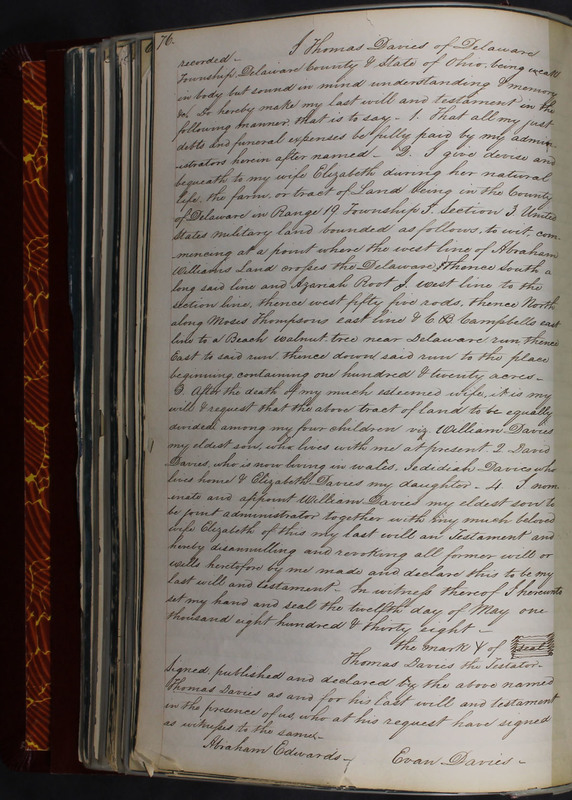 76.
recorded – I Thomas Davies of Delaware
Township, Delaware County & State of Ohio, being weak
in body but sound in mind understanding & memory
&c. Do hereby make my last will and testament in the
following manner, that is to say – 1. That all my just
debts and funeral expenses be fully paid by my admin-
istrators herein after named – 2. I give devise and
bequeath to my wife Elizabeth during her natural
life, the farm, or tract of Land being in the County
of Delaware in Range 19. Township 5. Section 3. United
States Military land bounded as follows, to wit, com-
mencing at a point where the west line of Abraham
Williams Land crosses the Delaware, thence South a
long said line and Azariah Root J. west line to the
section line, thence west fifty five rods, thence North
along Moses Thompsons east line & C. B. Campbells east
line to a Beach walnut tree near Delaware run thence
East to said run thence down said run to the place
beginning, containing one hundred & twenty acres –
3. After the death of my much esteemed wife, it is my
will & request that the above tract of land to be equally
devided among my four children viz, William Davies
my eldest son, who lives with me at present. 2 David
Davies, who is now living in wales, Jedediah Davies who
lives home & Elizabeth Davies my daughter – 4 I nom-
inate and appoint William Davies my eldest son to
be joint administrator together with my much beloved
wife Elizabeth of this my last will an Testament and
hereby disannulling and revoking all former will or
wills heretofore by me made and declare this to be my
last will and testament – In witness thereof I hereunto
set my hand and seal the twelfth day of May one
thousand eight hundred & thirty eight –
the mark X of seal
Thomas Davies the Testator –
Signed, published and declared by the above named
Thomas Davies as and for his last will and testament
in the presence of us, who at his request have signed
as witnesses to the same –
Abraham Edwards – Evan Davies –